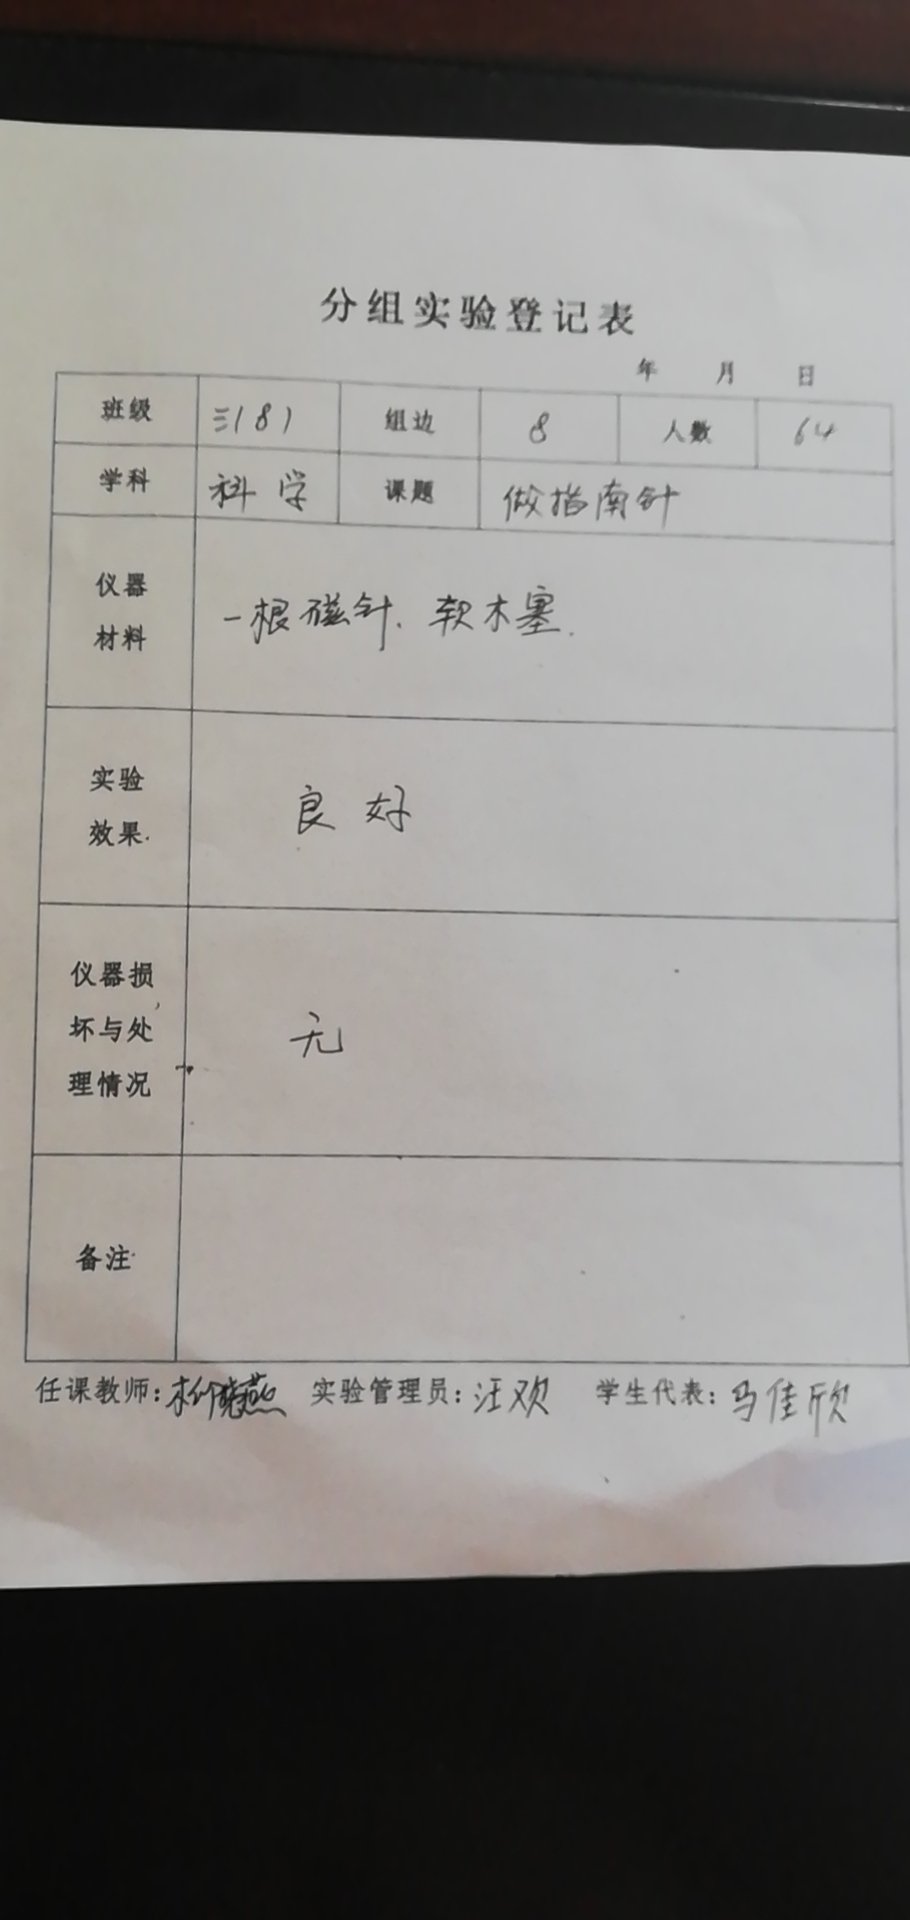 分组实验登记表
年 月 日
班级 三(8) 组边 8 人数 64
学科 科学 课题 做指南针
仪器
材料
一根磁针、软木塞.
实验
效果
良好
仪器损
坏与处
理情况
无
备注
任课教师:柳晓燕 实验管理员:汪欢 学生代表:马佳欣